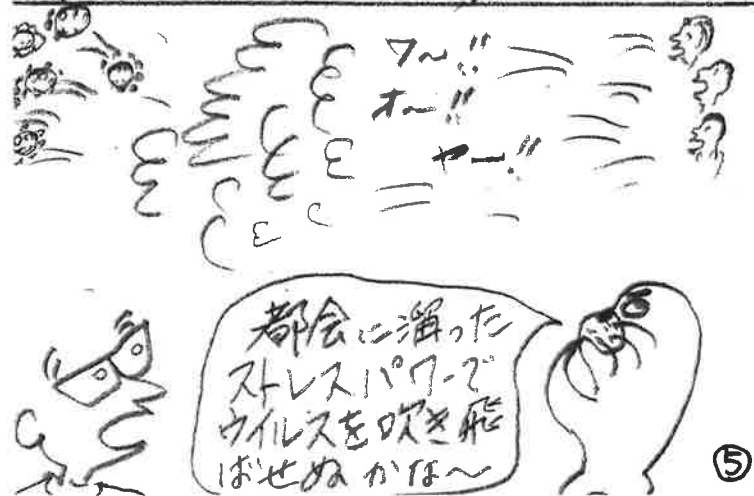 ワ〜!!
オ〜!!
ヤー!!
都会に溜った
ストレスパワーで
ウイルスを吹き飛
ばせぬかな〜
⑤